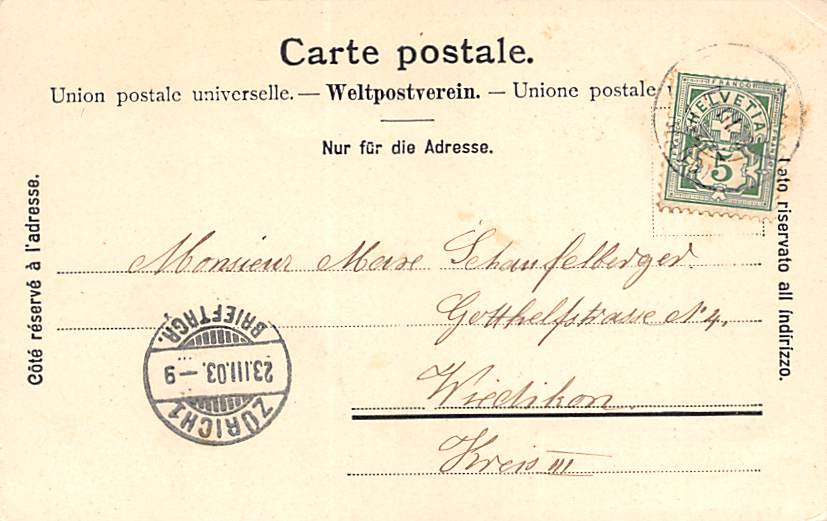 Carte postale.
Union postale universelle. — Weltpostverein. — Unione postale
Nur für die Adresse.
Côté réservé à l'adresse.
Lato riservato all indirizzo.
FRANCO
HELVETIA
5
Monsieur Marc Schaufelberger
Gotthelfstrasse No 4,
Wiedikon.
Kreis III
BRIEFTRGR.
23.III.03.–9
ZÜRICH 1